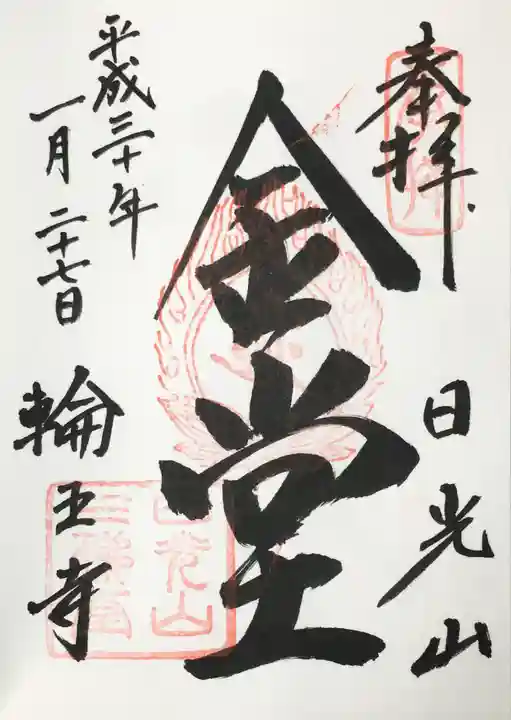 奉拝
日光山
金堂
平成三十年
一月二十七日
輪王寺
日光山